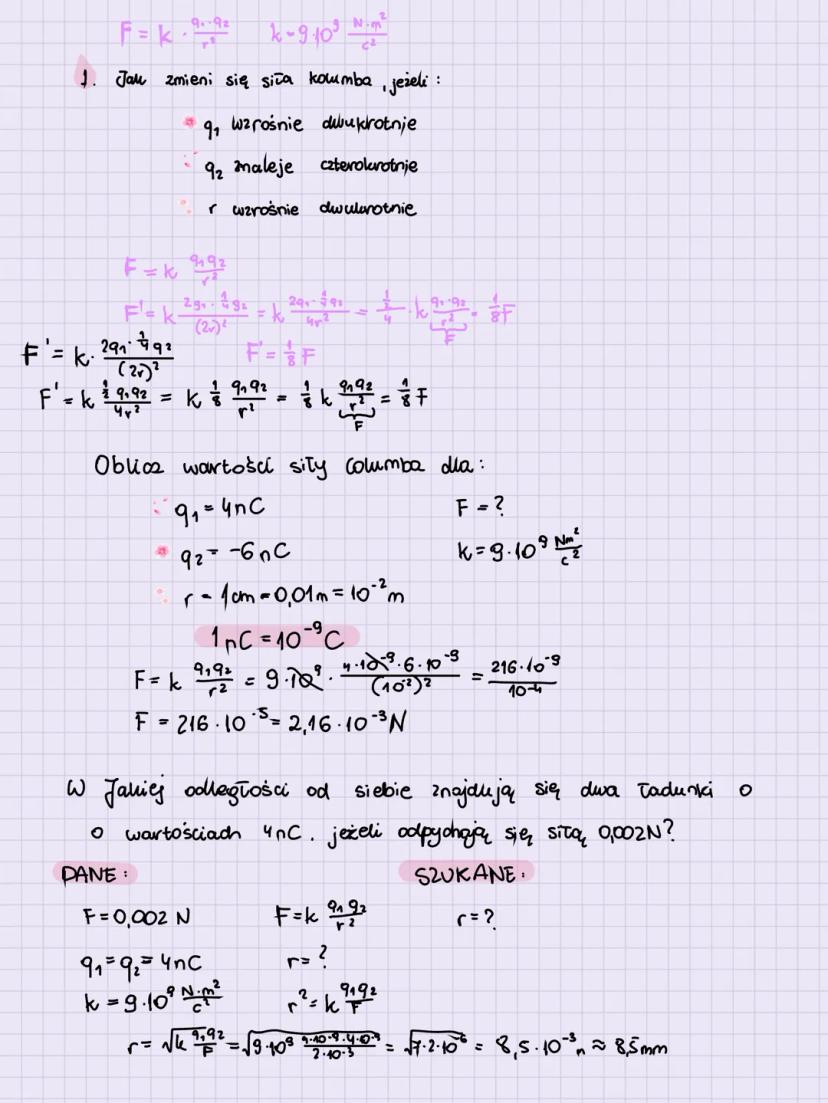 F = k · q₁·q₂/r² k = 9·10⁹ N·m²/c²
1. Jak zmieni się siła kolumba, jeżeli:
q₁ wzrośnie dwukrotnie
q₂ zmaleje czterokrotnie
r wzrośnie dwukrotnie
F = k q₁q₂/r²
F' = k 2q₁·¼q₂/(2r)² = k 2q₁·¼q₂/4r² = ½/4 · k q₁·q₂/r² = ⅛F
F
F' = k · 2q₁·¼q₂/(2r)² F' = ⅛ F
F' = k ½ q₁q₂/4r² = k ⅛ q₁q₂/r² = ⅛ k q₁q₂/r² = ⅛ F
F
Oblicz wartości siły Columba dla:
q₁ = 4nC F = ?
q₂ = -6nC k = 9·10⁹ Nm²/c²
r = 1cm = 0,01m = 10⁻² m
1nC = 10⁻⁹C
F = k q₁q₂/r² = 9·10⁹ · 4·10⁻⁹·6·10⁻⁹/(10⁻²)² = 216·10⁻⁹/10⁻⁴
F = 216·10⁻⁵ = 2,16·10⁻³ N
W Jakiej odległości od siebie znajdują się dwa ładunki o
o wartościach 4nC. jeżeli odpychają się siłą 0,002N?
DANE: SZUKANE:
F = 0,002 N F = k q₁q₂/r² r = ?
q₁ = q₂ = 4nC r = ?
k = 9·10⁹ N·m²/c² r² = k q₁q₂/F
r = √(k q₁q₂/F) = √(9·10⁹ 4·10⁻⁹·4·10⁻⁹/2·10⁻³) = √(7·2·10⁻⁶) = 8,5·10⁻³ ≈ 8,5mm